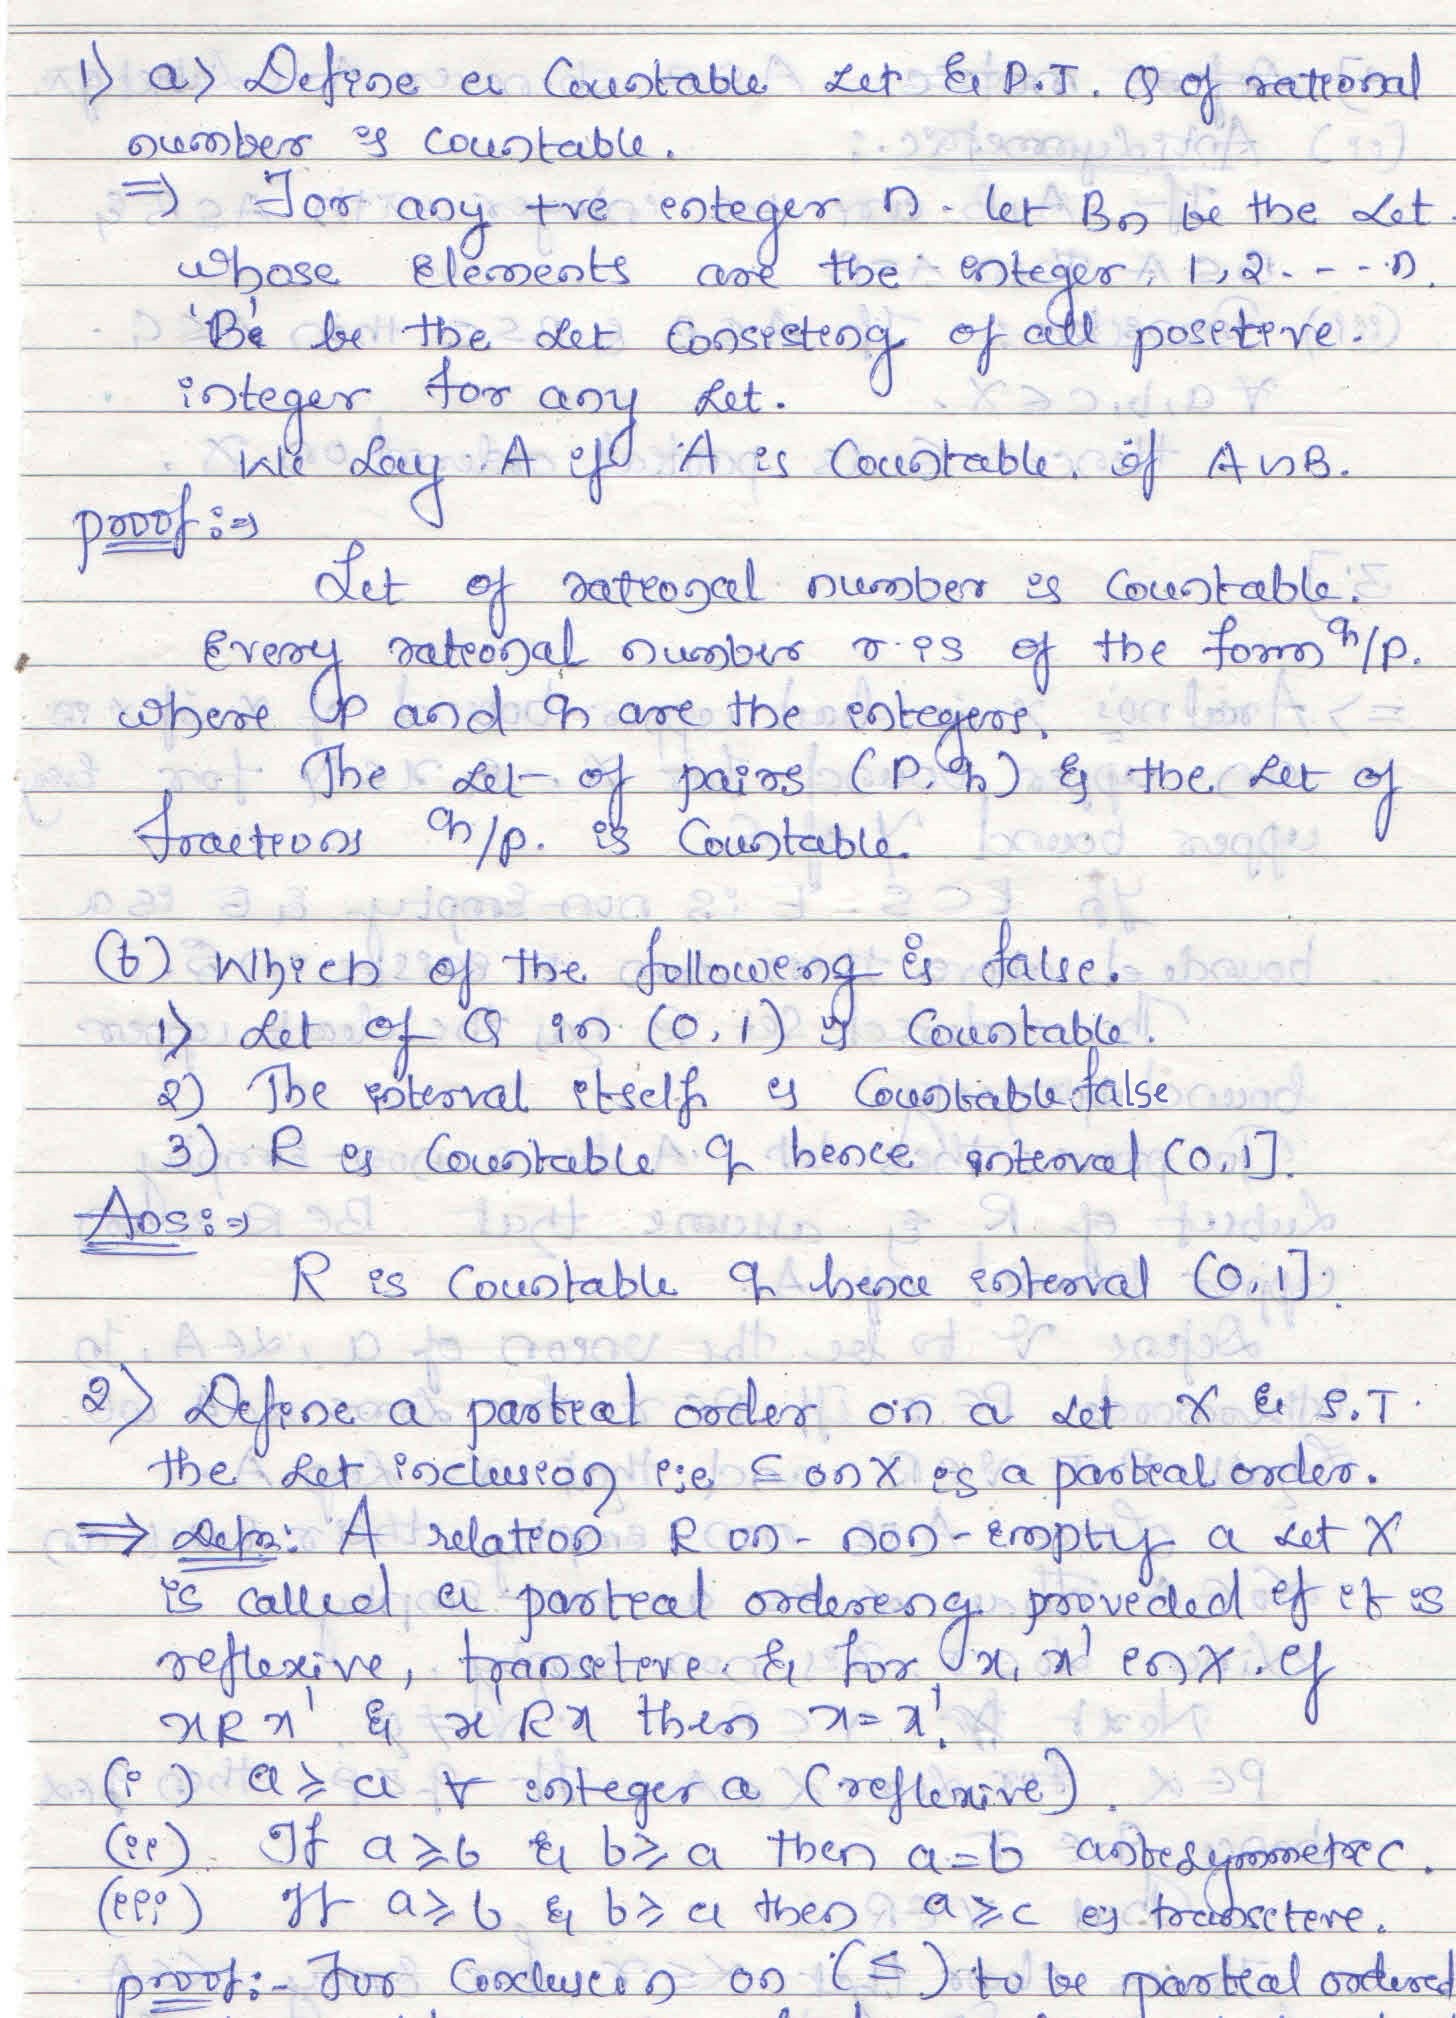 1) a) Define a Countable Set & P.T. Q of rational
number is countable.
⇒ For any +ve integer n. let Bn be the set
whose Elements are the integer, 1, 2 - - - n.
'Be' be the set Consisting of all positive.
integer for any set.
We say A if A is Countable. if A∽B.
proof:⇒
Set of rational number is Countable.
Every rational number r is of the form q/p.
where p and q are the integers.
The set of pairs (p, q) & the set of
fractions q/p. is Countable.
(b) Which of the following is false.
1) Set of Q in (0, 1) is Countable.
2) The interval itself is Countable false
3) R is Countable & hence interval (0, 1].
Ans:⇒
R is Countable & hence interval (0, 1].
2) Define a partial order on a set X & S.T.
the set inclusion i;e ⊆ on X is a partial order.
⇒ Defn: A relation R on - non-empty a set X
is called a partial ordering provided if it is
reflexive, transitive. & for x, x' in X. if
xRx' & x'Rx then x=x'.
(i) a≥a ∀ integer a (reflexive).
(ii) If a≥b & b≥a then a=b antisymmetric.
(iii) If a≥b & b≥a then a≥c is transitive.
proof:- For Conclusion on (⊆) to be partial ordered